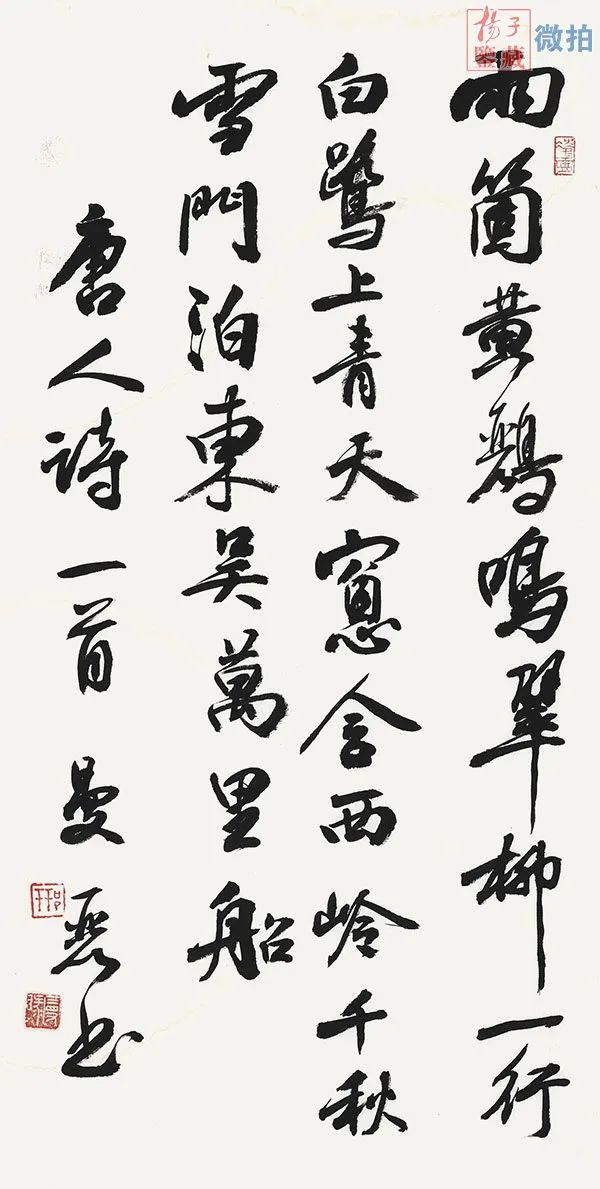 揚子鑒藏 微拍
兩箇黄鸝鳴翠柳一行
白鷺上青天窻含西岭千秋
雪門泊東吴萬里船
唐人詩一首 曼书